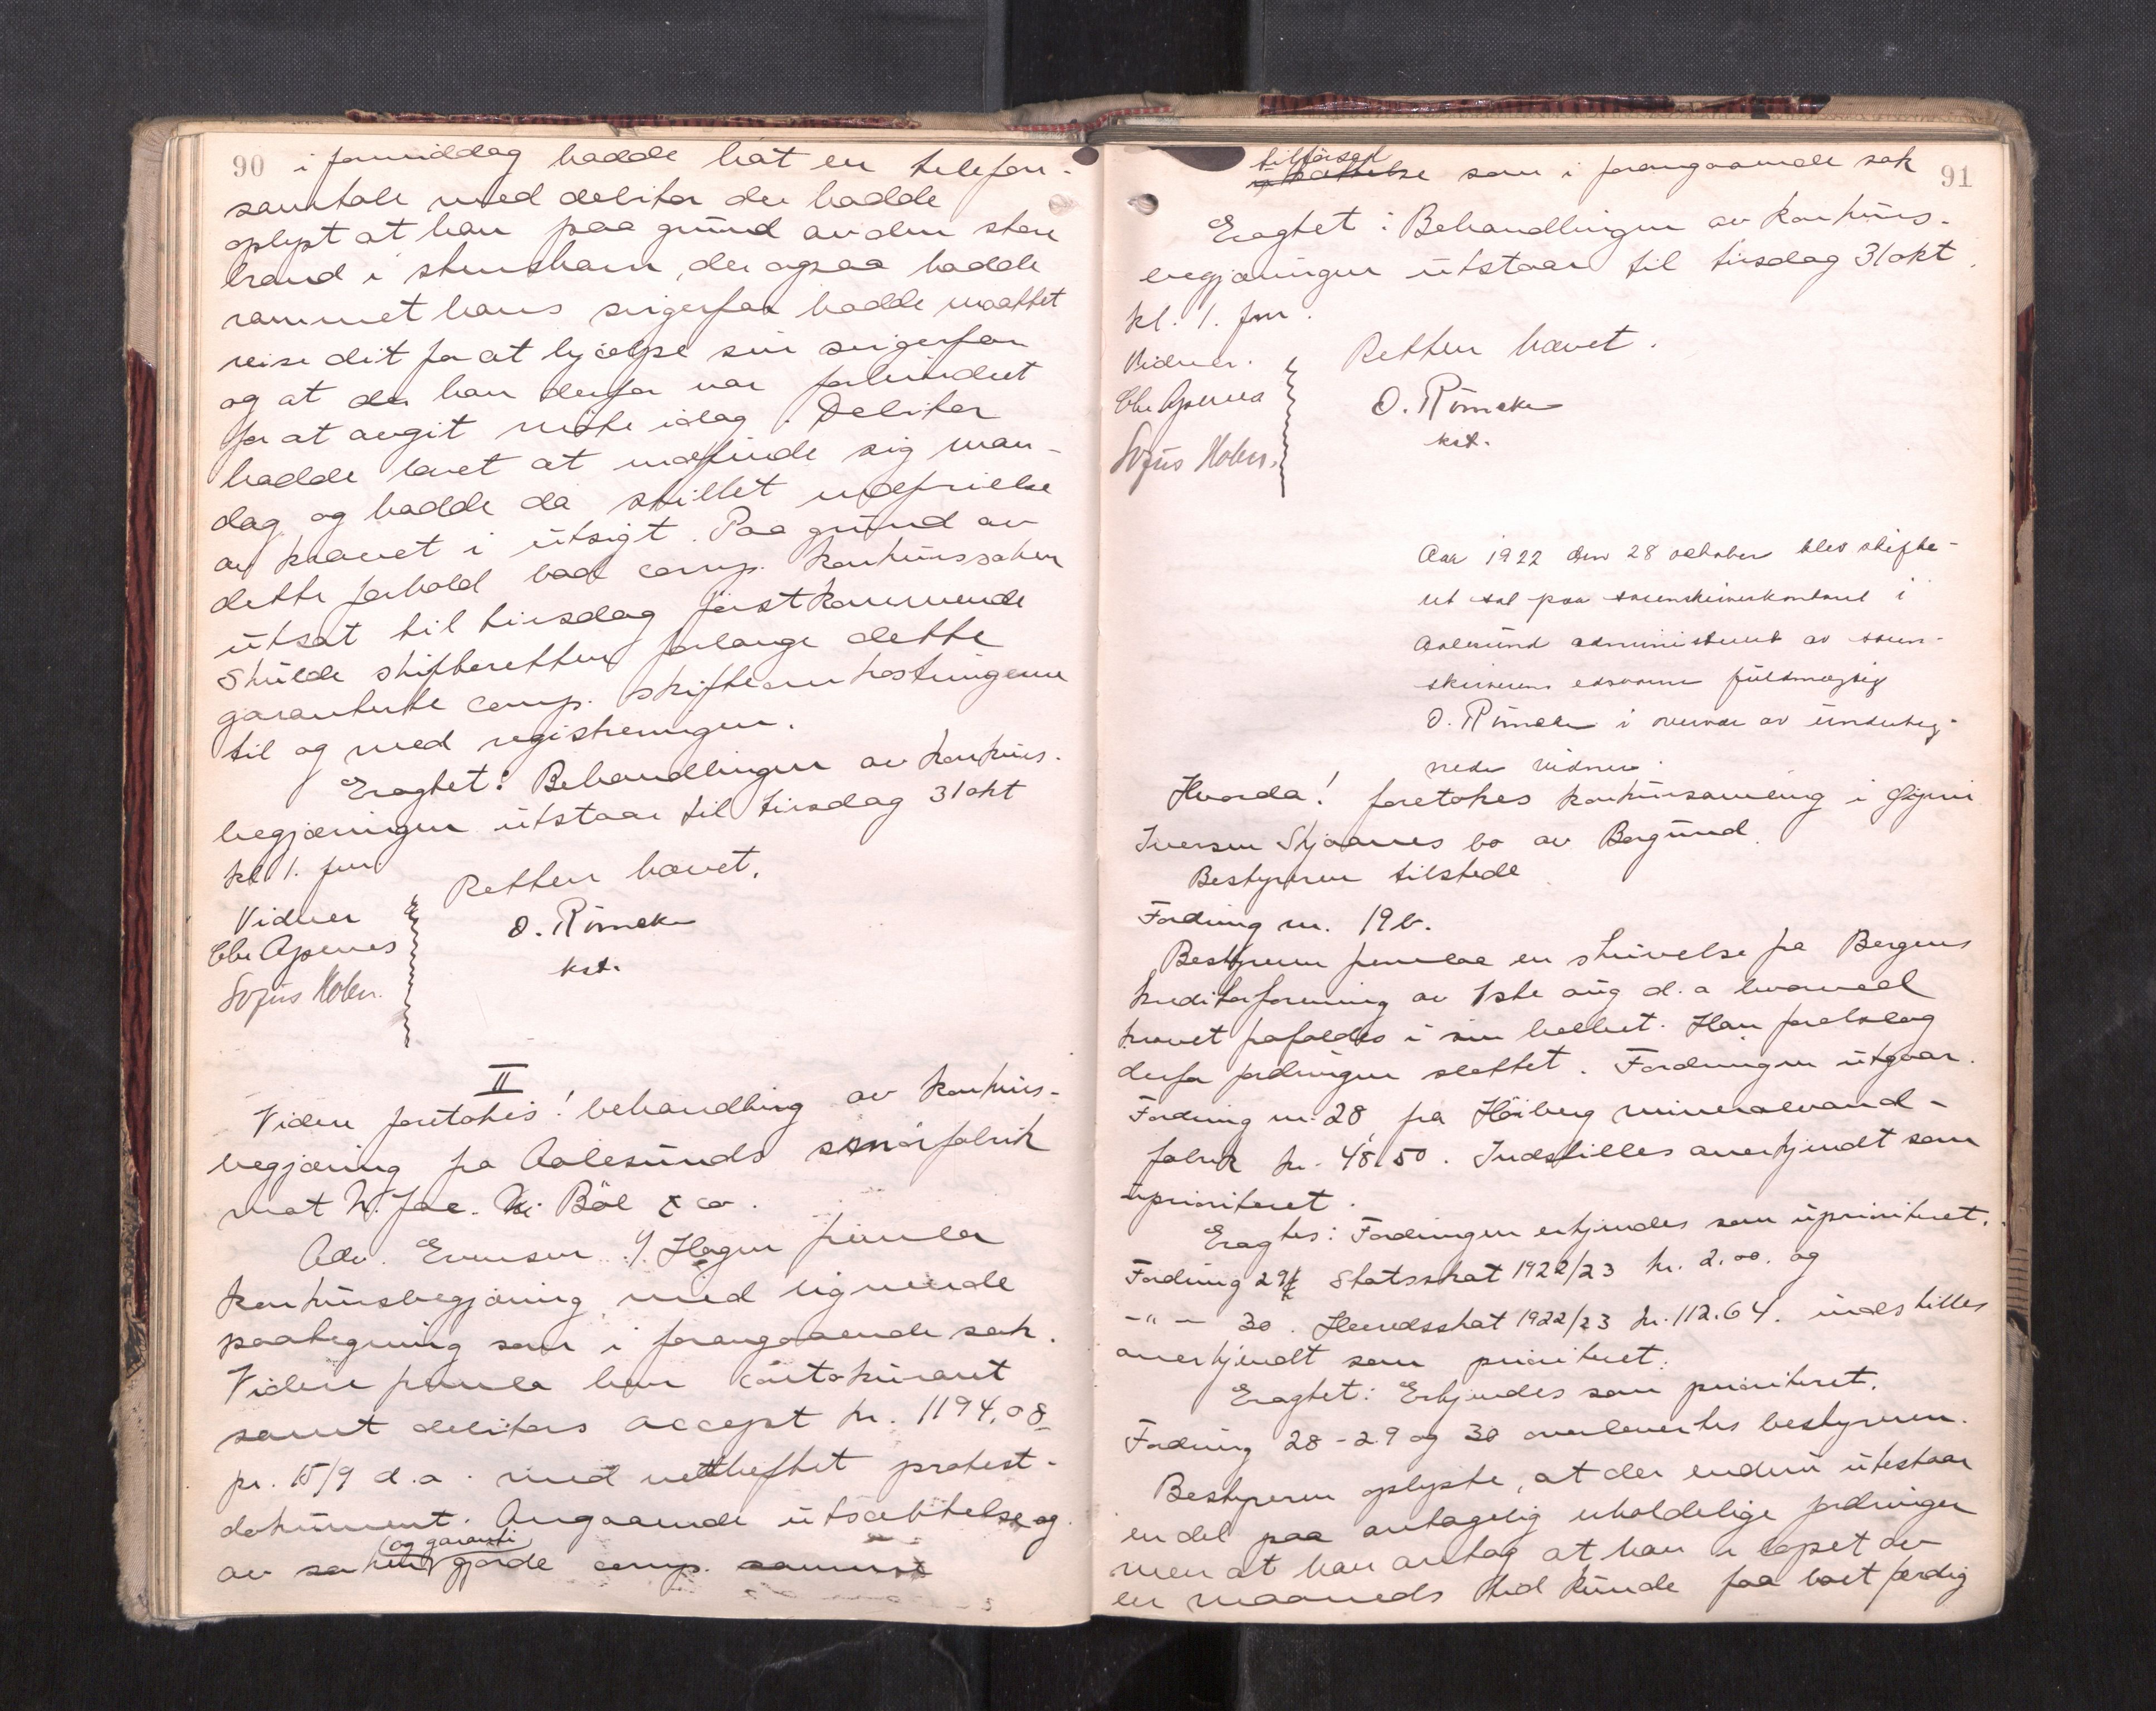 90
i formiddag hadde hat en telefon-
samtale med debitor der hadde
oplyst at han paa grund av den store
brand i Stensham, der ogsaa hadde
rammet hans svigerfar hadde maattet
reise dit for at hjælpe sin svigerfar
og at der han derfor var forhindret
for at avgit møte idag. Debitor
hadde lovet at indfinde sig man-
dag og hadde da stillet indfrielse
av kravet i utsigt. Paa grund av
dette forhold bad comp. konkurssaken
utsat til tirsdag førstkommende
Skulde skifteretten forlange dette
garanterte comp. skifteomkostningerne
til og med registreringen.
Eragtet: Behandlingen av konkurs-
begjæringen utstaar til tirsdag 31 okt
kl 1. fm.
Retten hævet.
Vidner
Chr Apenes
Sofus Holen.
O. Römcke
kst.
II
Videre foretokes! behandling av konkurs-
begjæring fra Aalesunds smørfabrik
mot N. Jac. Böe & co.
Adv. Evensen v/ Hagen fremla
konkursbegjæring med lignende
paategning som i forangaaende sak.
Videre fremla han contokurant
samt debitors accept kr. 1194,08
pr. 15/9 d.a. med vedheftet protest-
dokument. Angaaende utsættelse og
og garanti
av saken gjorde comp. samme
91
tilførsel
som i forangaaende sak
Eragtet: Behandlingen av konkurs-
begjæringen utstaar til tirsdag 31 okt.
kl. 1. fm.
Retten hævet.
Vidner.
Chr Apenes
Sofus Holen.
O. Römcke
kst.
Aar 1922 den 28 oktober blev skifte-
ret sat paa sorenskriverkontoret i
Aalesund administrert av soren-
skriverens edsvorne fuldmægtig
O. Römcke i overvær av underteg-
nede vidner.
Hvorda! foretokes konkurssamling i
Iversen Skjaanes bo av Borgund.
Bestyreren tilstede
Fordring nr. 19b.
Bestyreren fremla en skrivelse fra Bergens
kreditorforening av 1ste aug d.a hvorved
kravet frafaldes i sin helhet. Han foreslog
derfor fordringen slettet. Fordringen utgaar.
Fordring nr. 28, fra Höiberg mineralvand-
fabrik kr. 48.50. Indstilles anerkjendt som
uprioritert.
Eragtes: Fordringen erkjendes som uprioritert.
Fordring 29 Statsskat 1922/23 kr. 2.00. og
-"- 30. Herredsskat 1922/23 kr. 112.64. indstilles
anerkjendt som prioritert.
Eragtet: Erkjendes som prioritert.
Fordring 28-29 og 30 overlevertes bestyreren.
Bestyreren oplyste, at der endnu utestaar
en del paa antagelig uholdelige fordringer
men at han antog at han i løpet av
en maaneds tid kunde faa boet færdig